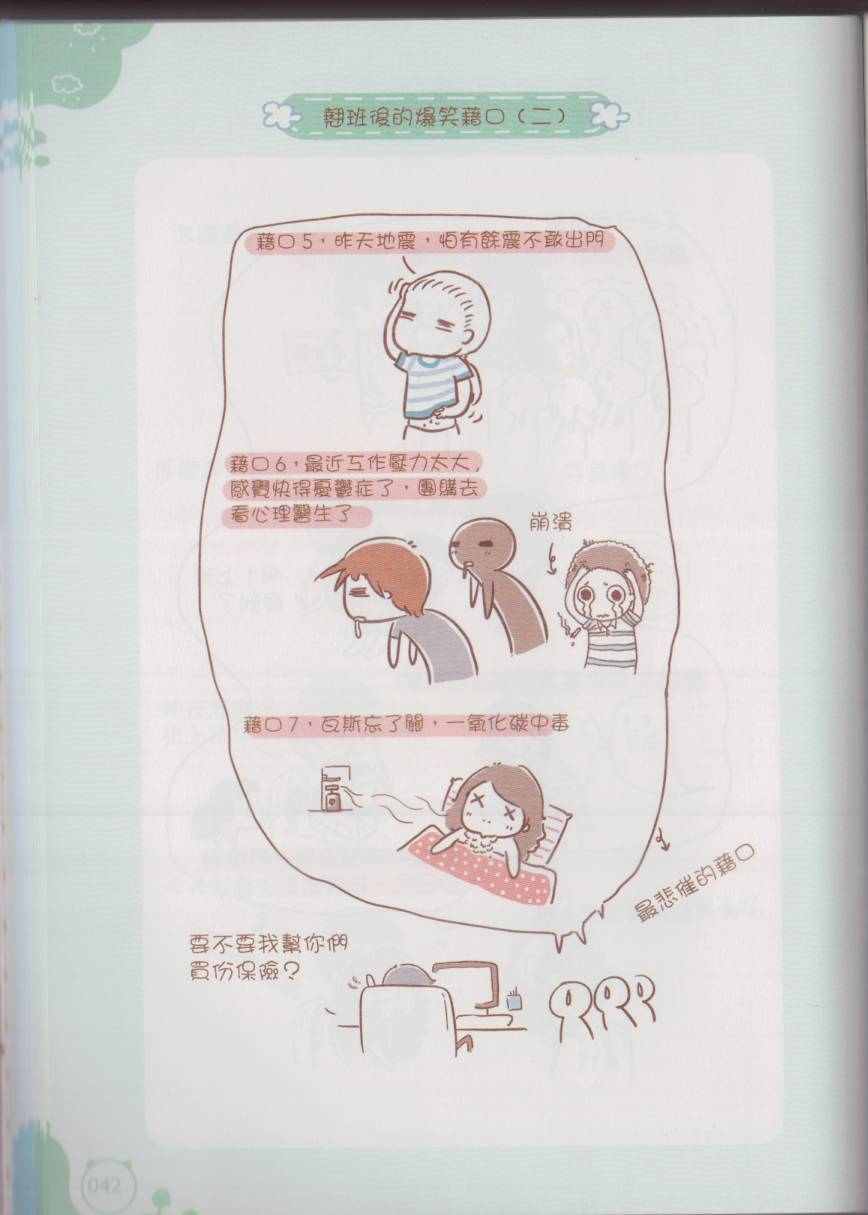 翹班後的爆笑藉口（二）
藉口5，昨天地震，怕有餘震不敢出門
藉口6，最近工作壓力太大，
感覺快得憂鬱症了，團購去
看心理醫生了
崩潰
藉口7，瓦斯忘了關，一氧化碳中毒
最悲催的藉口
要不要我幫你們
買份保險？
042